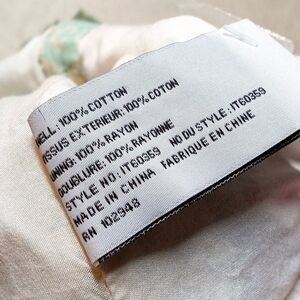 HELL: 100% COTTON
ISSUS EXTERIEUR: 100% COTON
INING: 100% RAYON
DOUBLURE: 100% RAYONNE
STYLE NO: IT60359 NO DU STYLE: IT60359
MADE IN CHINA FABRIQUE EN CHINE
RN 102948